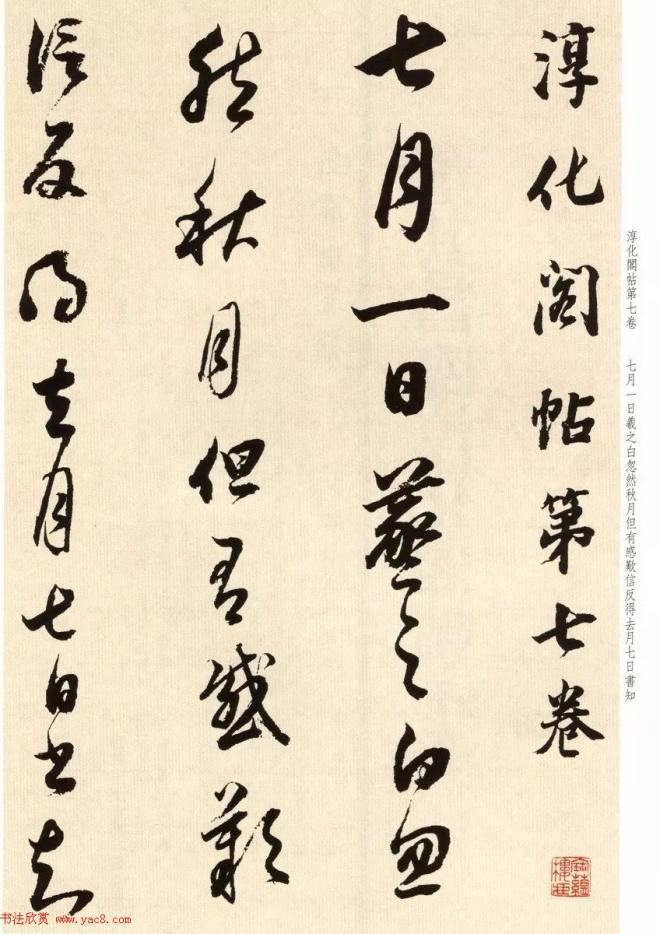 淳化阁帖第七卷
七月一日羲之白忽
然秋月但有感歎
信反得去月七日书知
淳化閣帖第七卷 七月一日羲之白忽然秋月但有感歎信反得去月七日書知
书法欣赏 www.yac8.com